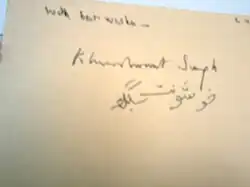 With best wishes —
Khushwant Singh
خوشونت سنگھ